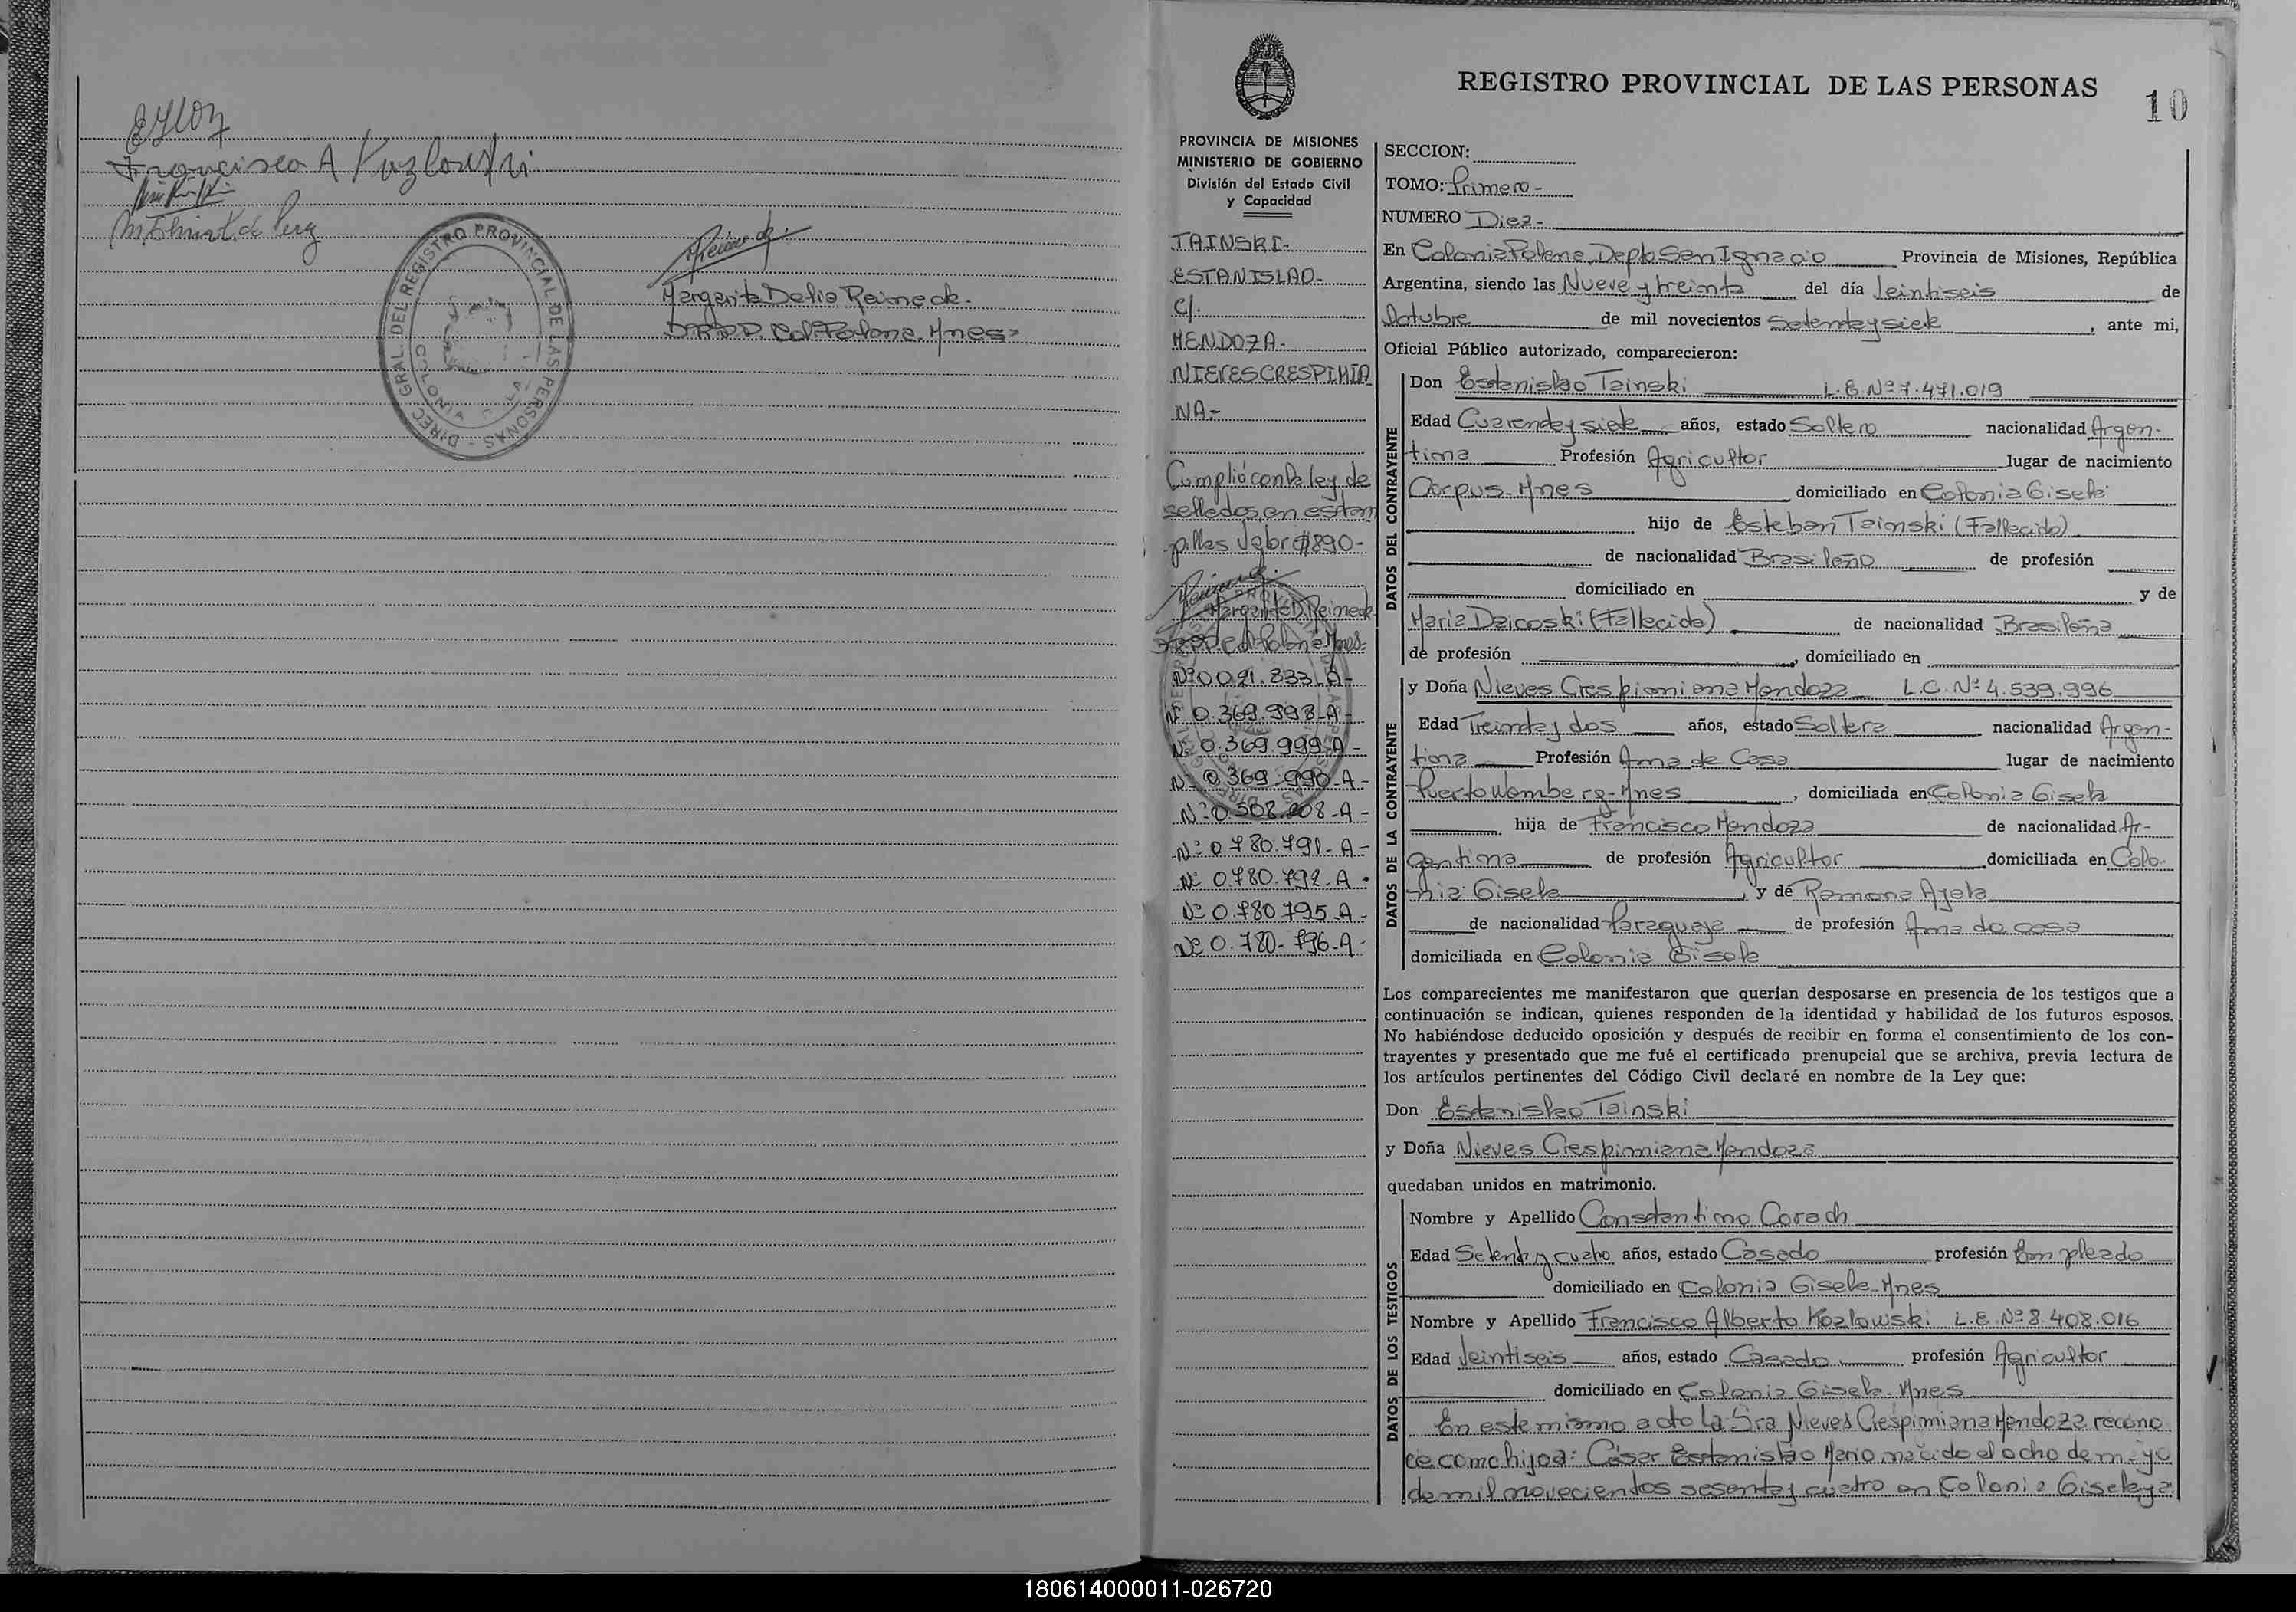 Francisco A Kozlouski
DIREC. GRAL. DEL REGISTRO PROVINCIAL DE LAS PERSONAS
COLONIA
Margarita Delia Reineck.
D.R.P.P. Col Polona. Mnes
REGISTRO PROVINCIAL DE LAS PERSONAS
10
PROVINCIA DE MISIONES
MINISTERIO DE GOBIERNO
División del Estado Civil
y Capacidad
TAINSKI-
ESTANISLAO-
C/.
MENDOZA-
NIEVES CRESPINIA
NA-
Cumplió con la ley de
sellados en estam
pillas valor $890-
Margarita D. Reineck
D.R.P.P. Col Polona Mnes.
Nº 0.021.833 A-
Nº 0.369.998-A-
Nº 0.369.999-A-
Nº 0.369.990-A-
Nº 0.508.208-A-
Nº 0.780.791-A-
Nº 0.780.792-A-
Nº 0.780.795 A-
Nº 0.780.796-A-
SECCION:
TOMO: Primero-
NUMERO Diez-
En Colonia Polona Depto San Ignacio Provincia de Misiones, República
Argentina, siendo las Nueve y treinta del día Veintiseis de
Octubre de mil novecientos Setenta y siete, ante mi,
Oficial Público autorizado, comparecieron:
DATOS DEL CONTRAYENTE
Don Estanislao Tainski L.E. Nº 7.471.019
Edad Cuarenta y siete años, estado Soltero nacionalidad Argen-
tina Profesión Agricultor lugar de nacimiento
Corpus-Mnes domiciliado en Colonia Gisela
hijo de Esteban Tainski (Fallecido)
de nacionalidad Brasileño de profesión
domiciliado en y de
Maria Daicoski (Fallecida) de nacionalidad Brasileña
de profesión, domiciliado en
DATOS DE LA CONTRAYENTE
y Doña Nieves Crespiniana Mendoza L.C. Nº 4.539.996
Edad Treinta y dos años, estado Soltera nacionalidad Argen-
tina Profesión Ama de Casa lugar de nacimiento
Puerto Wamberg-Mnes, domiciliada en Colonia Gisela
hija de Francisco Mendoza de nacionalidad Ar-
gentina de profesión Agricultor domiciliada en Colo-
nia Gisela, y de Ramona Ayala
de nacionalidad Paraguaya de profesión Ama de casa
domiciliada en Colonia Gisela
Los comparecientes me manifestaron que querían desposarse en presencia de los testigos que a
continuación se indican, quienes responden de la identidad y habilidad de los futuros esposos.
No habiéndose deducido oposición y después de recibir en forma el consentimiento de los con-
trayentes y presentado que me fué el certificado prenupcial que se archiva, previa lectura de
los artículos pertinentes del Código Civil declaré en nombre de la Ley que:
Don Estanislao Tainski
y Doña Nieves Crespiniana Mendoza
quedaban unidos en matrimonio.
DATOS DE LOS TESTIGOS
Nombre y Apellido Constantino Corach
Edad Setenta y cuatro años, estado Casado profesión Empleado
domiciliado en Colonia Gisela-Mnes
Nombre y Apellido Francisco Alberto Kozlowski L.E. Nº 8.408.016
Edad Veintiseis años, estado Casado profesión Agricultor
domiciliado en Colonia Gisela-Mnes
En este mismo acto la Sra Nieves Crespiniana Mendoza recono
ce como hijos: César Estanislao Mario nacido el ocho de mayo
de mil novecientos sesenta y cuatro en Colonia Gisela ya
180614000011-026720